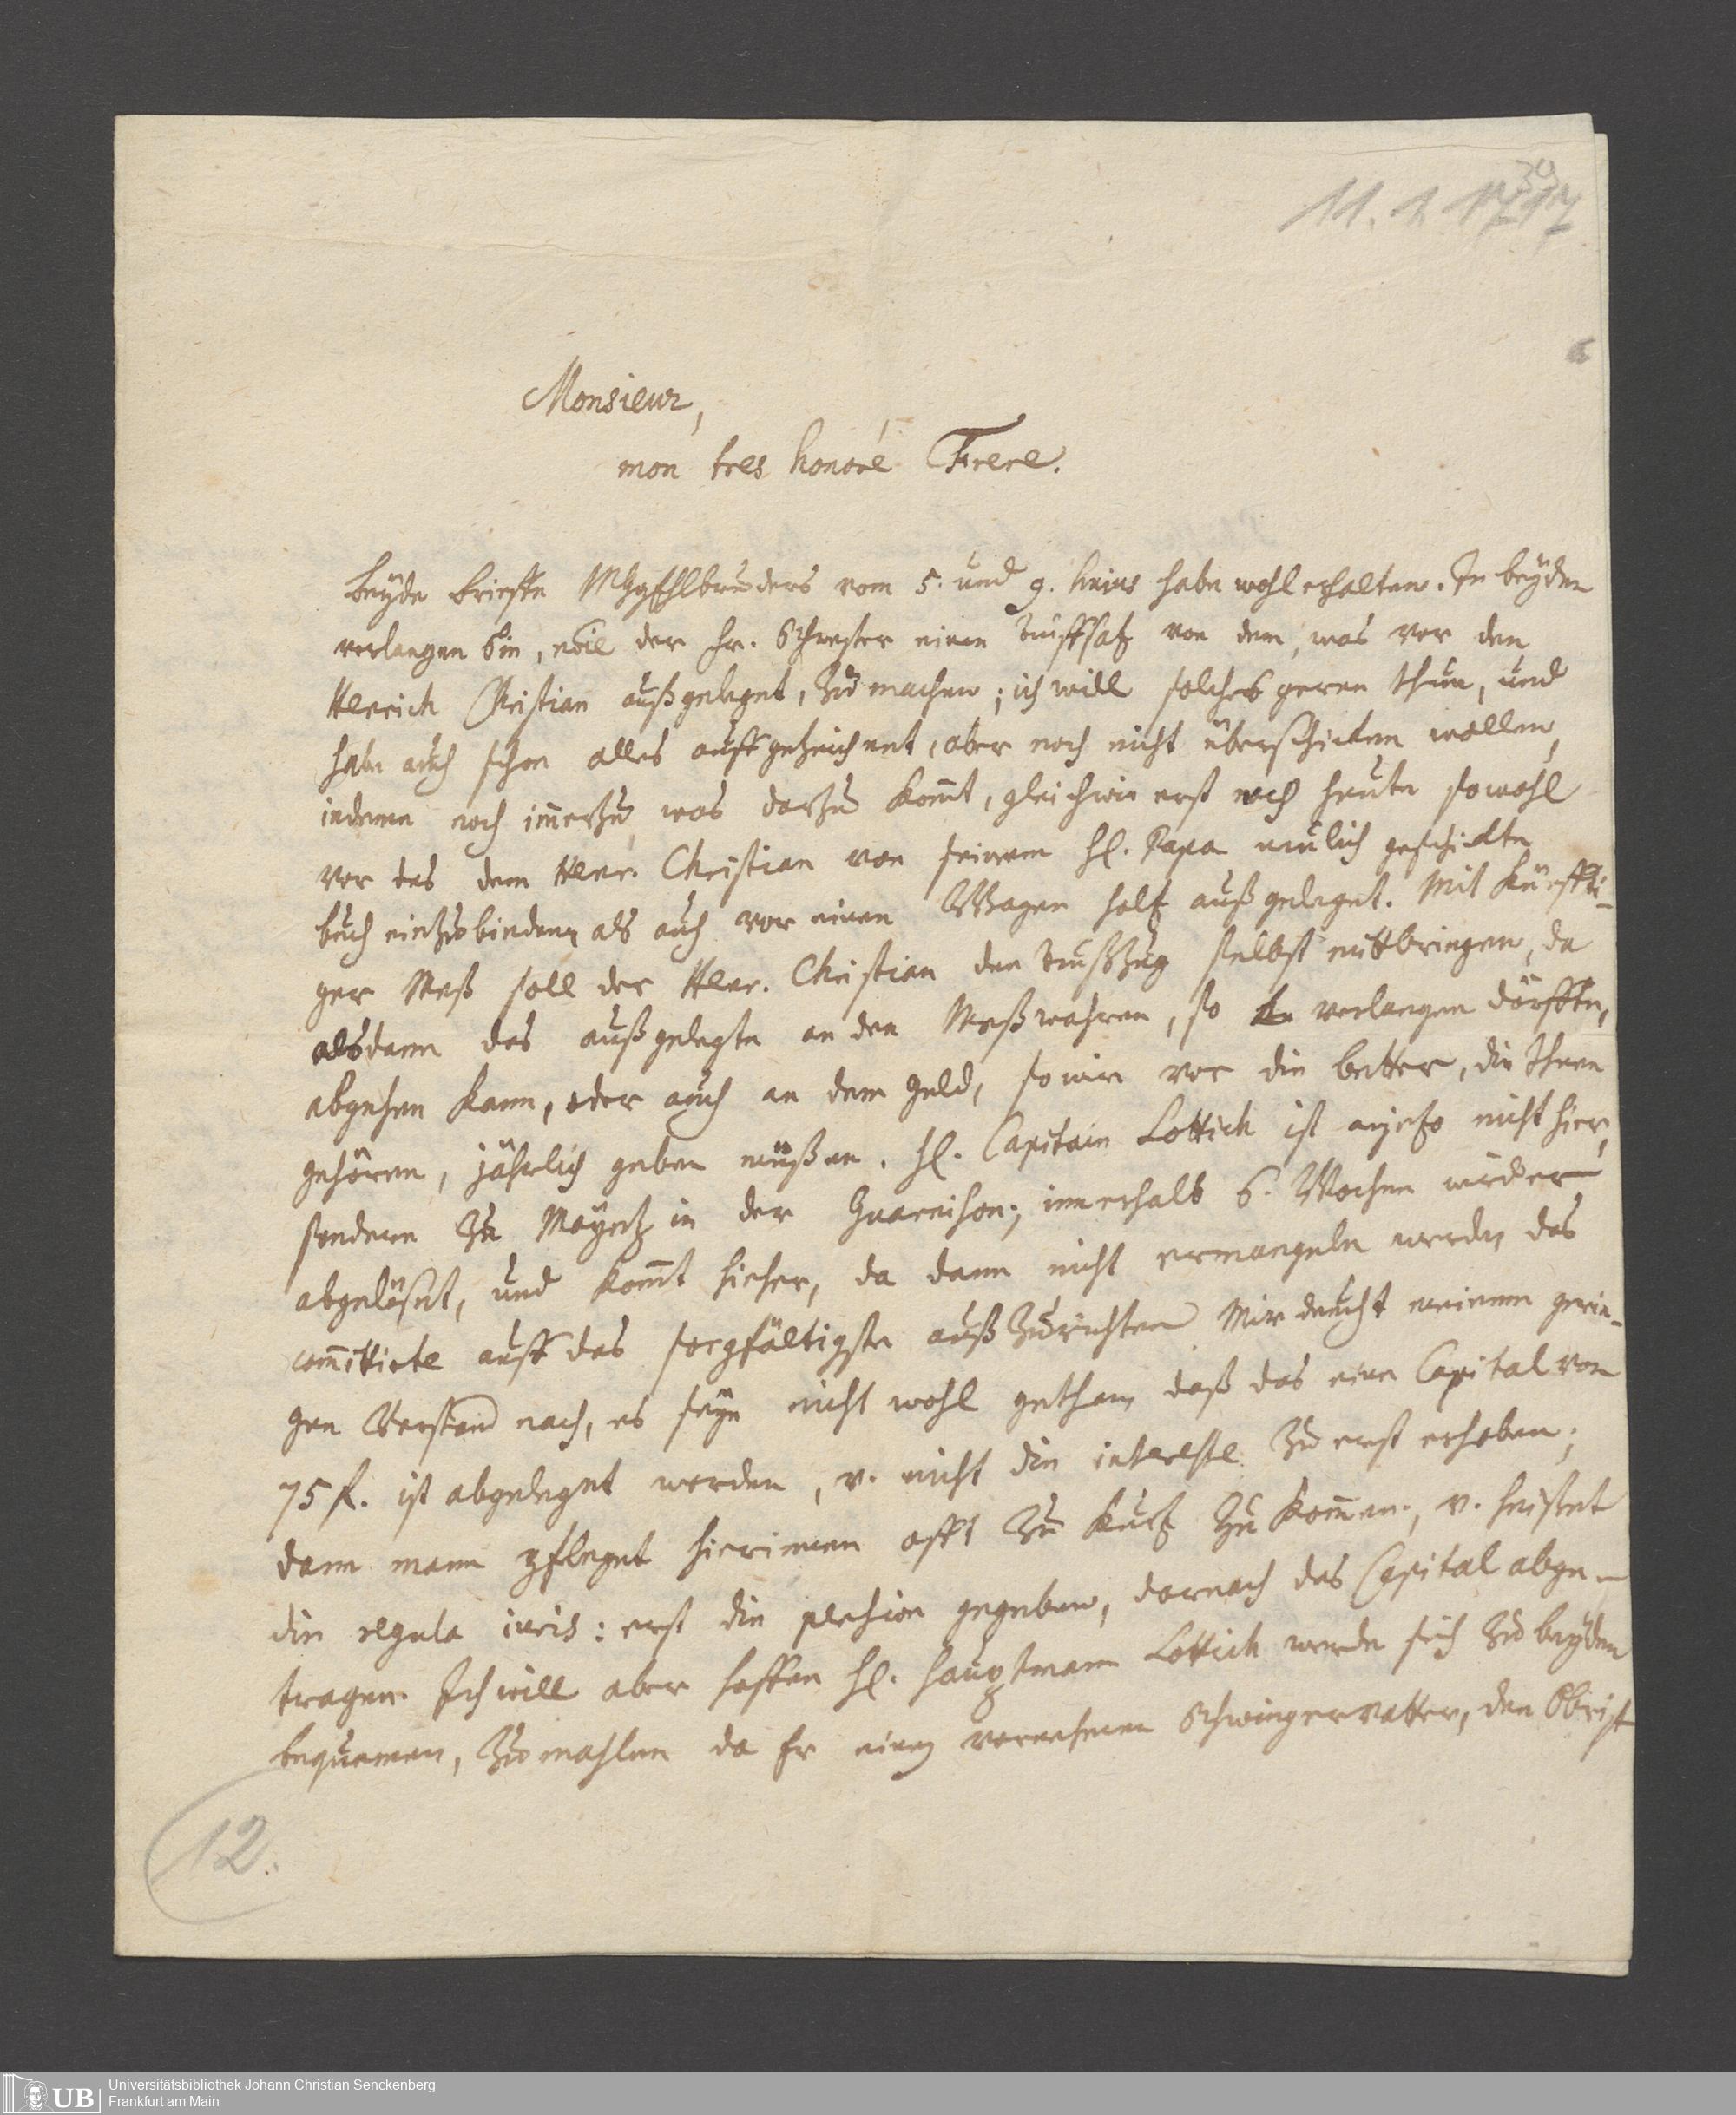 11. 1. 1717
30
Monsieur,
mon tres honoré Frere.
beyde brieffe MhgEhlbruders vom 5. und 9. huius habe wohl erhalten. In beyden
verlangen Sie, der Fr. Schwester einen Auffsatz von dem, was vor den
Henrich Christian außgeleget, zu machen; ich will solches geren thun, und
habe auch schon alles auffgezeichnet, aber noch nicht überschicken wollen,
indeme noch im̅erzu was darzu kom̅t, gleichwie erst noch heute sowohl
vor das dem Henr. Christian von seinem Hl. Papa neulich geschickte
buch einzubinden als auch vor einen Wagen holtz außgeleget. Mit künffti-
ger Meß soll der Henr. Christian den Außzug selbst mittbringen, da
alsdann das außgelegte an den Meßwahren, so verlangen dörffte,
abgehen kann, oder auch an dem Geld, so wir vor die better, die Ihnen
gehören, jährlich geben müßen. Hl. Capitain Lottich ist anjetzo nicht hier,
sondern zu Mayntz in der Guarnison; innerhalb 6. Wochen wird er
abgelöset, und kom̅t hieher, da dann nicht ermangeln werde, das
com̅ittirte auff das sorgfältigste außzurichten. Mir deucht meinem gerin-
gen Verstand nach, es seye nicht wohl gethan, daß das eine Capital von
75 f. ist abgeleget worden, u. nicht die interesse zu erst erhoben;
dann mann pfleget hierinnen offt zu kurtz zu kom̅en, u. heiset
die regula iuris: erst die pension gegeben, darnach das Capital abge-
tragen. Ich will aber hoffen Hl. Hauptmann Lottich werde sich zu beyden
bequemen, zumahlen da Er einen vornehmen Schwiegervatter, den Obrist
12.
UB
Universitätsbibliothek Johann Christian Senckenberg
Frankfurt am Main